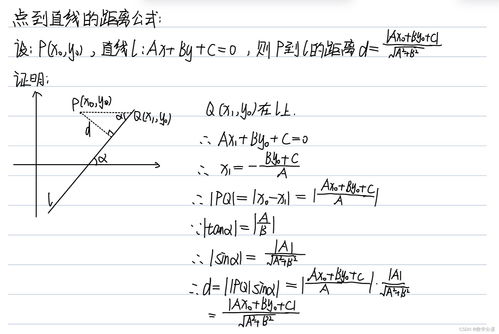 点到直线的距离公式:
设: P(x₀,y₀), 直线l: Ax+By+C=0, 则P到l的距离 d=|Ax₀+By₀+C|/√(A²+B²)
证明:
P(x₀,y₀)
α
Q(x₁,y₀)
d
α
l
Q(x₁,y₀)在l上.
∴ Ax₁+By₀+C=0
∴ x₁=-(By₀+C)/A
∴ |PQ|=|x₀-x₁|=|(Ax₀+By₀+C)/A|
∵ |tanα|=|A/B|
∴ |sinα|=|A|/√(A²+B²)
∴ d=||PQ|sinα|=|(Ax₀+By₀+C)/A|·|A|/√(A²+B²)
=|Ax₀+By₀+C|/√(A²+B²)